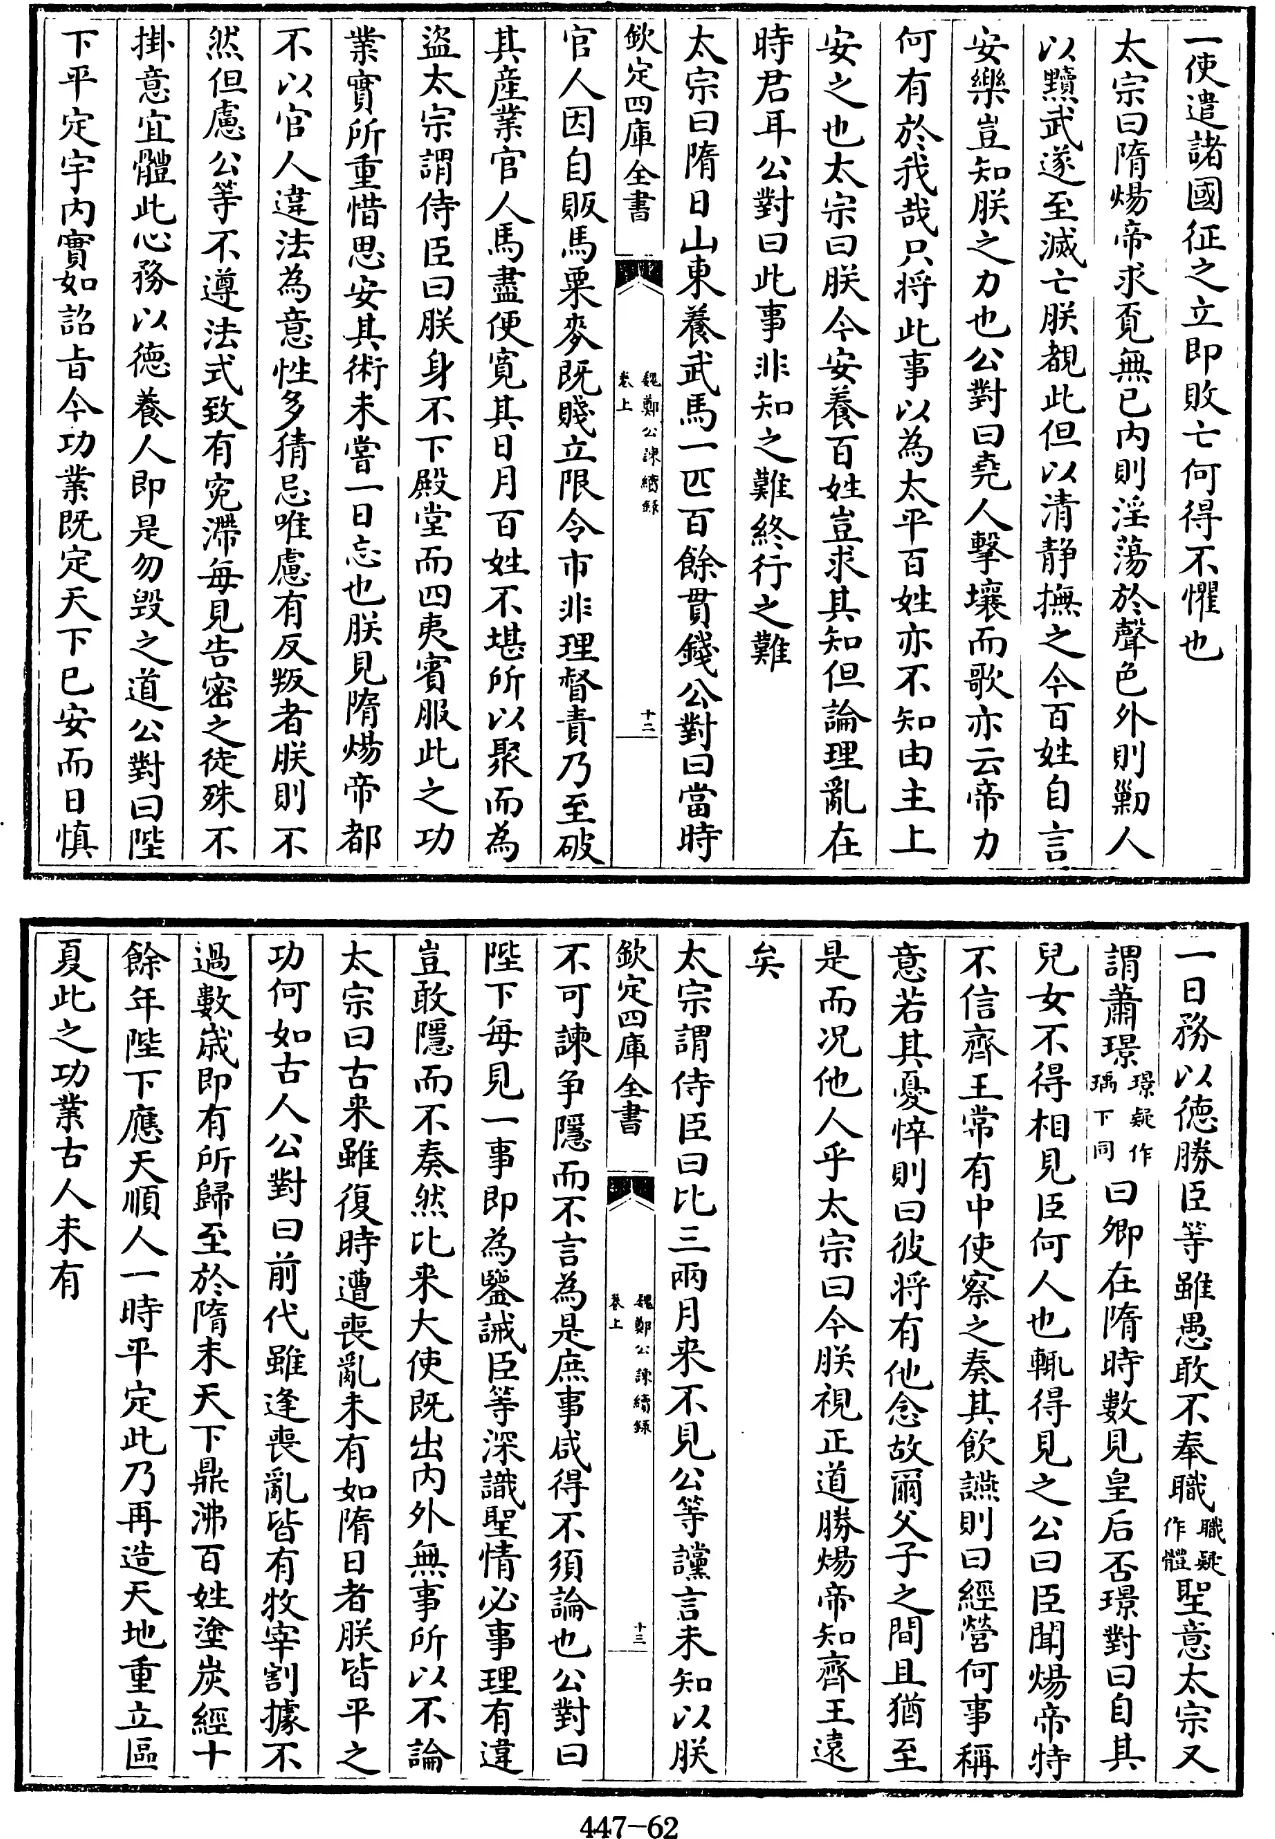 一使遣諸國征之立即敗亡何得不懼也
太宗曰隋煬帝求覔無已内則淫蕩於聲色外則勦人
以黷武遂至滅亡朕覩此但以清静撫之今百姓自言
安樂豈知朕之力也公對曰堯人擊壤而歌亦云帝力
何有於我哉只將此事以為太平百姓亦不知由主上
安之也太宗曰朕今安養百姓豈求其知但論理亂在
時君耳公對曰此事非知之難終行之難
太宗曰隋日山東養武馬一匹百餘貫錢公對曰當時
欽定四庫全書
魏鄭公諫續録
卷上
十二
官人因自販馬粟麥既賤立限令市非理督責乃至破
其産業官人馬盡便寛其日月百姓不堪所以聚而為
盜太宗謂侍臣曰朕身不下殿堂而四夷賓服此之功
業實所重惜思安其術未嘗一日忘也朕見隋煬帝都
不以官人違法為意性多猜忌唯慮有反叛者朕則不
然但慮公等不遵法式致有寃滯每見告密之徒殊不
掛意宜體此心務以徳養人即是勿毁之道公對曰陛
下平定宇内實如詔旨今功業既定天下已安而日慎
一日務以徳勝臣等雖愚敢不奉職職疑作體聖意太宗又
謂蕭璟璟疑作瑀下同曰卿在隋時數見皇后否璟對曰自其
兒女不得相見臣何人也輒得見之公曰臣聞煬帝特
不信齊王常有中使察之奏其飲讌則曰經營何事稱
意若其憂悴則曰彼將有他念故爾父子之間且猶至
是而况他人乎太宗曰今朕視正道勝煬帝知齊王遠
矣
太宗謂侍臣曰比三兩月來不見公等讜言未知以朕
欽定四庫全書
魏鄭公諫續録
卷上
十三
不可諫争隱而不言為是庶事咸得不須論也公對曰
陛下每見一事即為鑒誡臣等深識聖情必事理有違
豈敢隱而不奏然比來大使既出内外無事所以不論
太宗曰古來雖復時遭喪亂未有如隋日者朕皆平之
功何如古人公對曰前代雖逢喪亂皆有牧宰割據不
過數歲即有所歸至於隋末天下鼎沸百姓塗炭經十
餘年陛下應天順人一時平定此乃再造天地重立區
夏此之功業古人未有
447-62